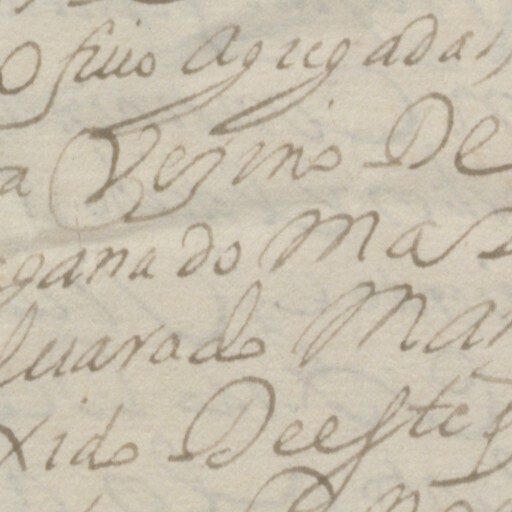 Ofiuo Agregadas
a Vezino De
ganado Mas
luarado Mar
xido De este